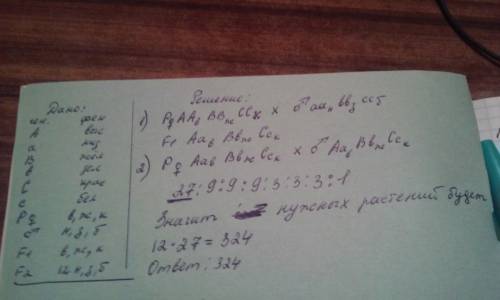 Дано:
ген. фен
A выс
a низ
B жел
в зел
C крас
c бел
P♀ в, ж, к
♂ н, з, б
F1 в, ж, к
F2 12 н, з, б
Решение:
1) P♀ AAв BBж CCк x ♂ aaн ввз ccб
F1 Aaв Bвж Ccк
2) P♀ Aaв Bвж Ccк x ♂ Aaв Bвж Ccк
27:9:9:9:3:3:3:1
Значит нужных растений будет
12·27=324
Ответ: 324